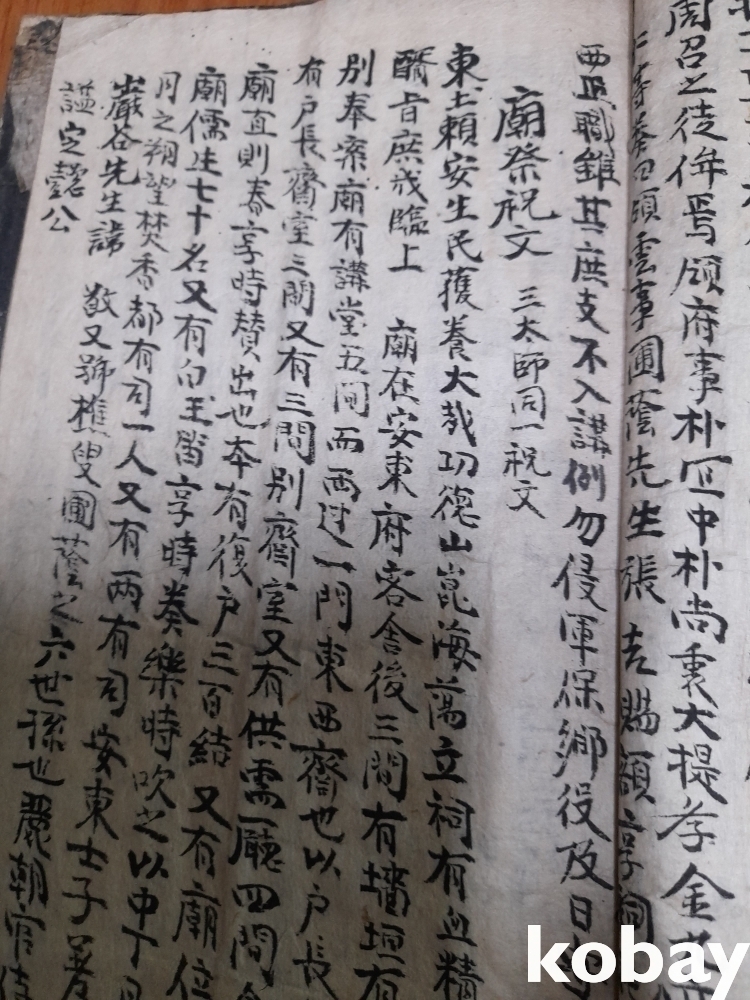 周召之徒侔焉 頒府事朴
中朴尚 大提 金
先生張 賜額享祠
西 職雖其庶支不入講例勿侵軍保鄉役及
廟祭祝文 三太師同一祝文
東土賴安生民獲養大哉功德山崑海蕩立祠有血精
庶或臨上 廟在安東府客舍後三間有墻垣有
別奉 廟有講堂五间而西过一門東西齋也以户長
有户長齋室三間又有三間別齋室又有供需廳四間
廟直則春享時賛出也本有復户三百結 又有廟位
廟儒生七十名又有白玉 享時奏樂時吹之以中丁
月之朔望焚香都有司一人又有两有司安東士子
巖谷先生諱 敬又號樵叟圃蔭之六世孫也麗朝官
謚定懿公
kobay